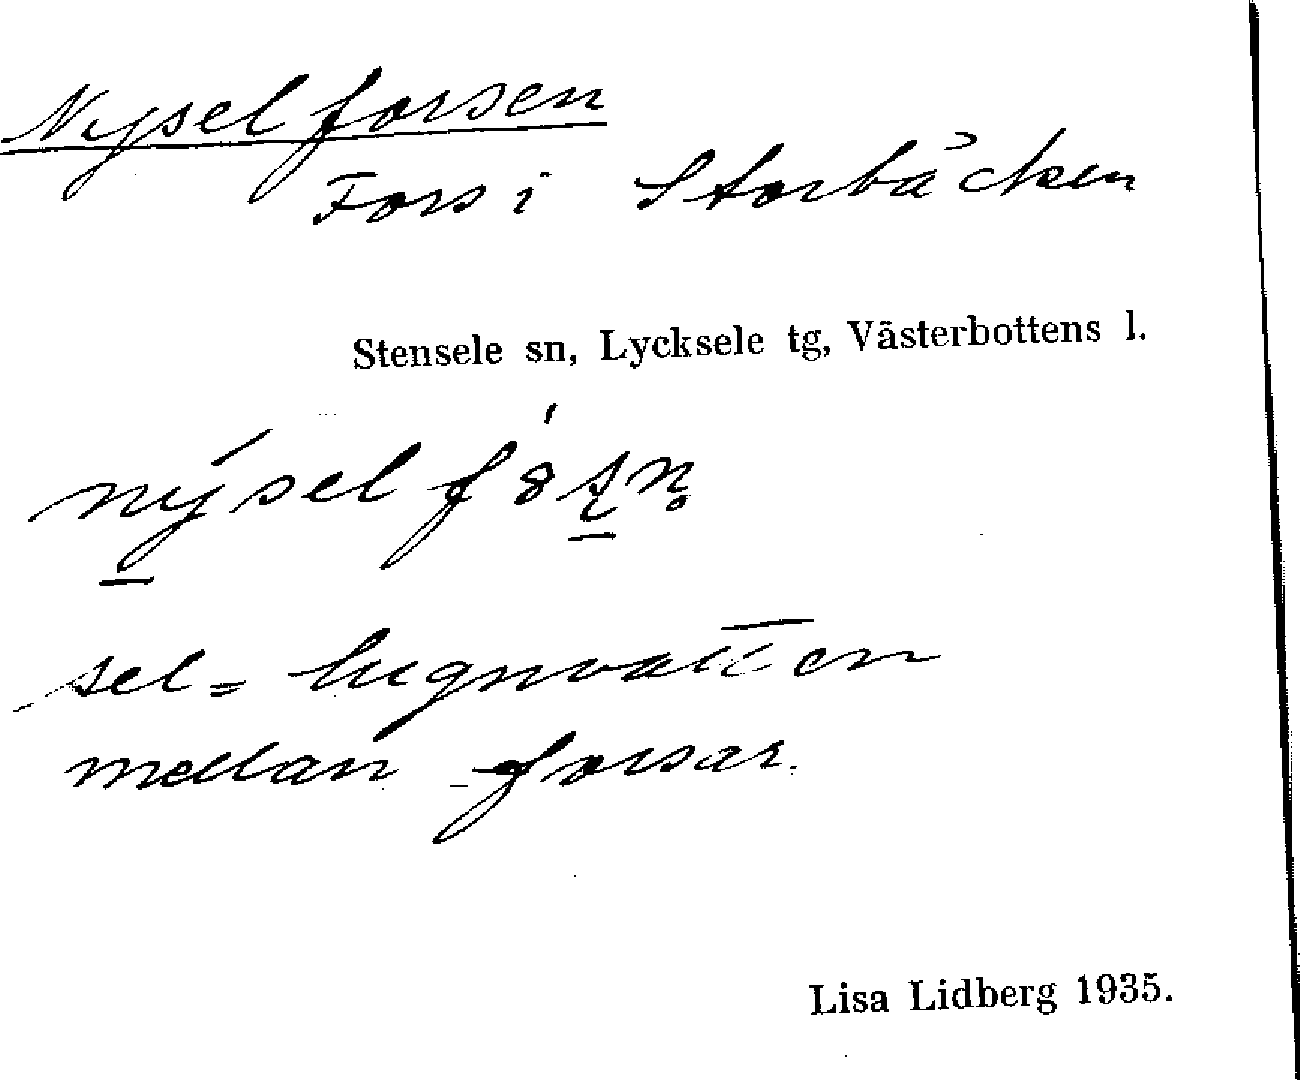 Nyselforsen
Fors i Storbäcken
Stensele sn, Lycksele tg, Västerbottens l.
sel = lugnvatten
mellan forsar.
Lisa Lidberg 1935.